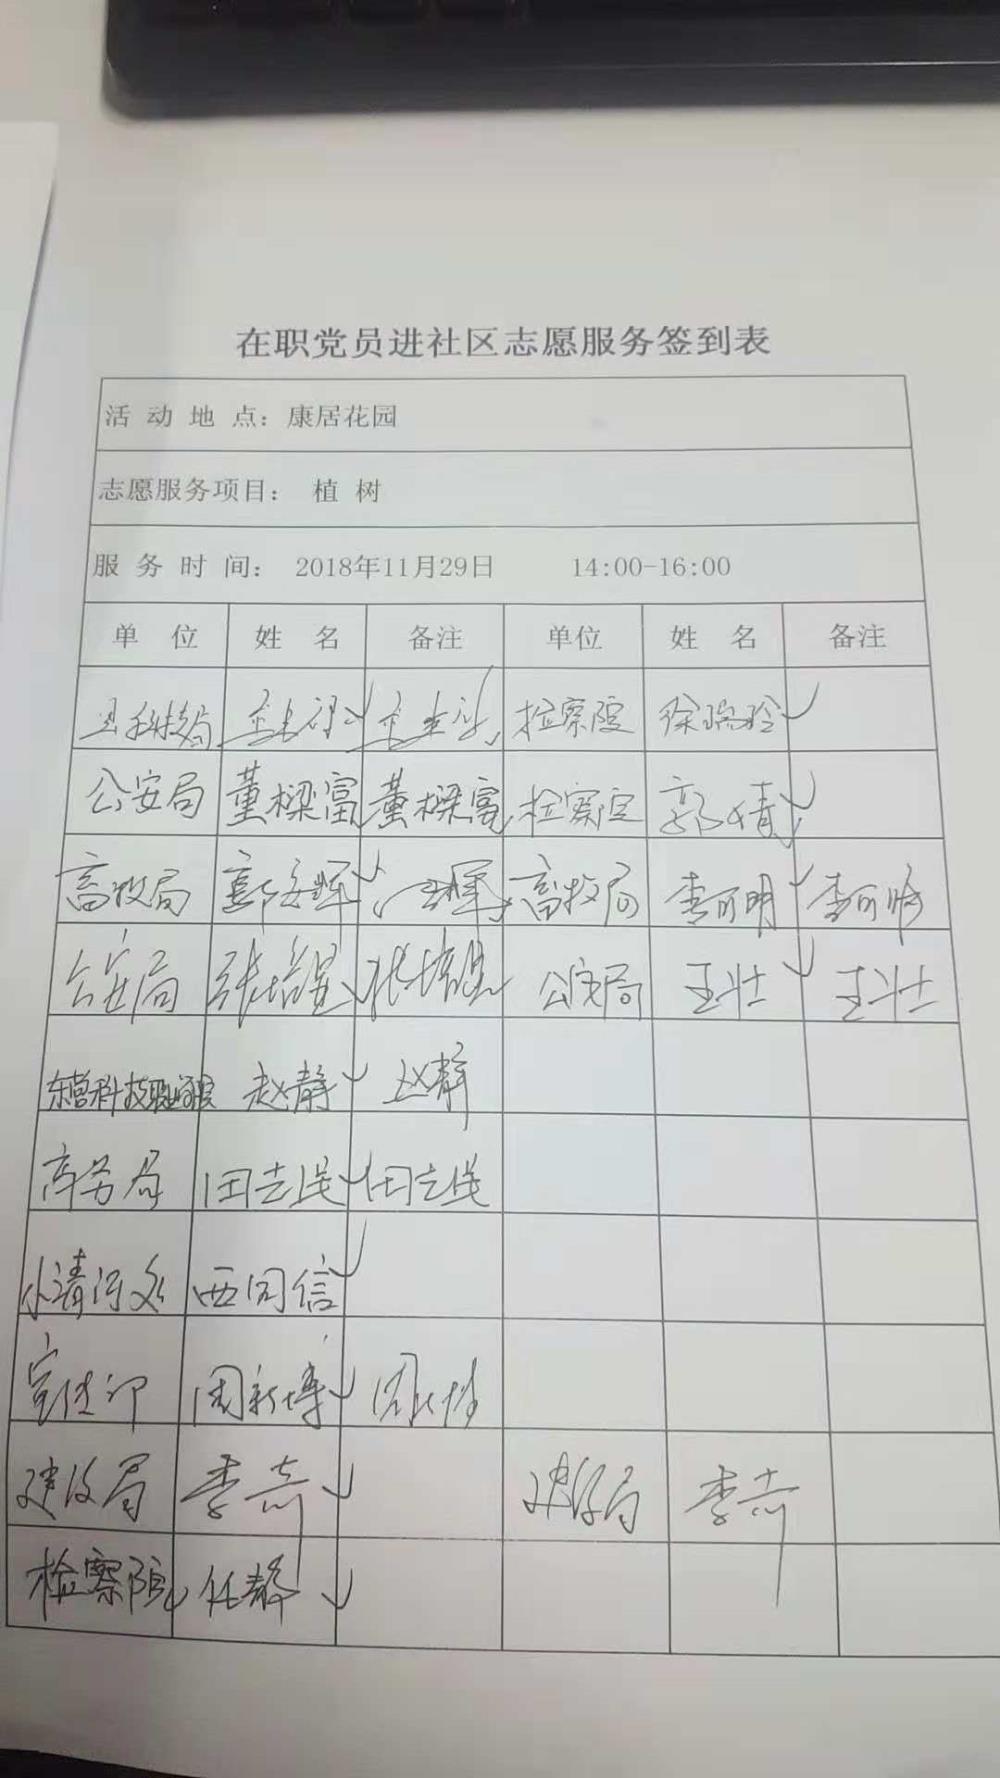 在职党员进社区志愿服务签到表
活 动 地 点：康居花园
志愿服务项目： 植 树
服 务 时 间： 2018年11月29日 14:00-16:00
单 位 姓 名 备注 单位 姓 名 备注
县科技局 检察院 徐瑞玲
公安局 董樑富 董樑富 检察院 郭倩
畜牧局 畜牧局 李可明
公安局 公安局 王壮 王壮
东营科技职业学院 赵静 赵静
商务局
小清河 西同信
宣传部 周新博
建设局 李奇 建设局 李奇
检察院 任静